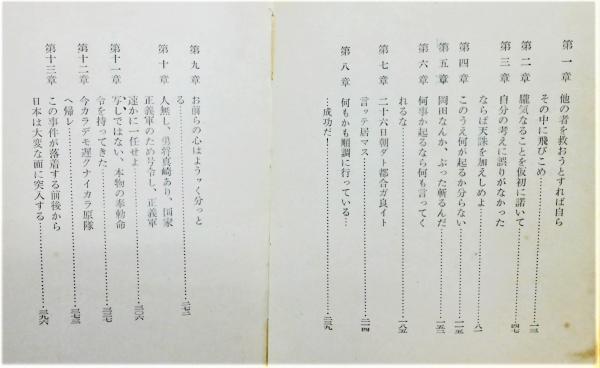 第一章 他の者を救おうとすれば自ら
その中に飛びこめ……………一三
第二章 朧気なることを仮初に諾いて……四七
第三章 自分の考えに誤りがなかった
ならば天誅を加えしめよ……………八一
第四章 このうえ何が起るか分らない……一一五
第五章 岡田なんか、ぶった斬るんだ……一五三
第六章 何事か起るなら何も言ってく
れるな……………一八五
第七章 二十六日朝ダト都合ガ良イト
言ッテ居マス……………二一四
第八章 何もかも順調に行っている…
…成功だ!……………二三九
第九章 お前らの心はようッく分っと
る……………二七二
第十章 人無し、勇将真崎あり、国家
正義軍のため号令し、正義軍
速かに一任せよ……………三〇六
第十一章 写しではない、本物の奉勅命
令を持ってきた……………三三七
第十二章 今カラデモ遅クナイカラ原隊
へ帰レ……………三七三
第十三章 この事件が落着する前後から
日本は大変な面に突入する……三九六